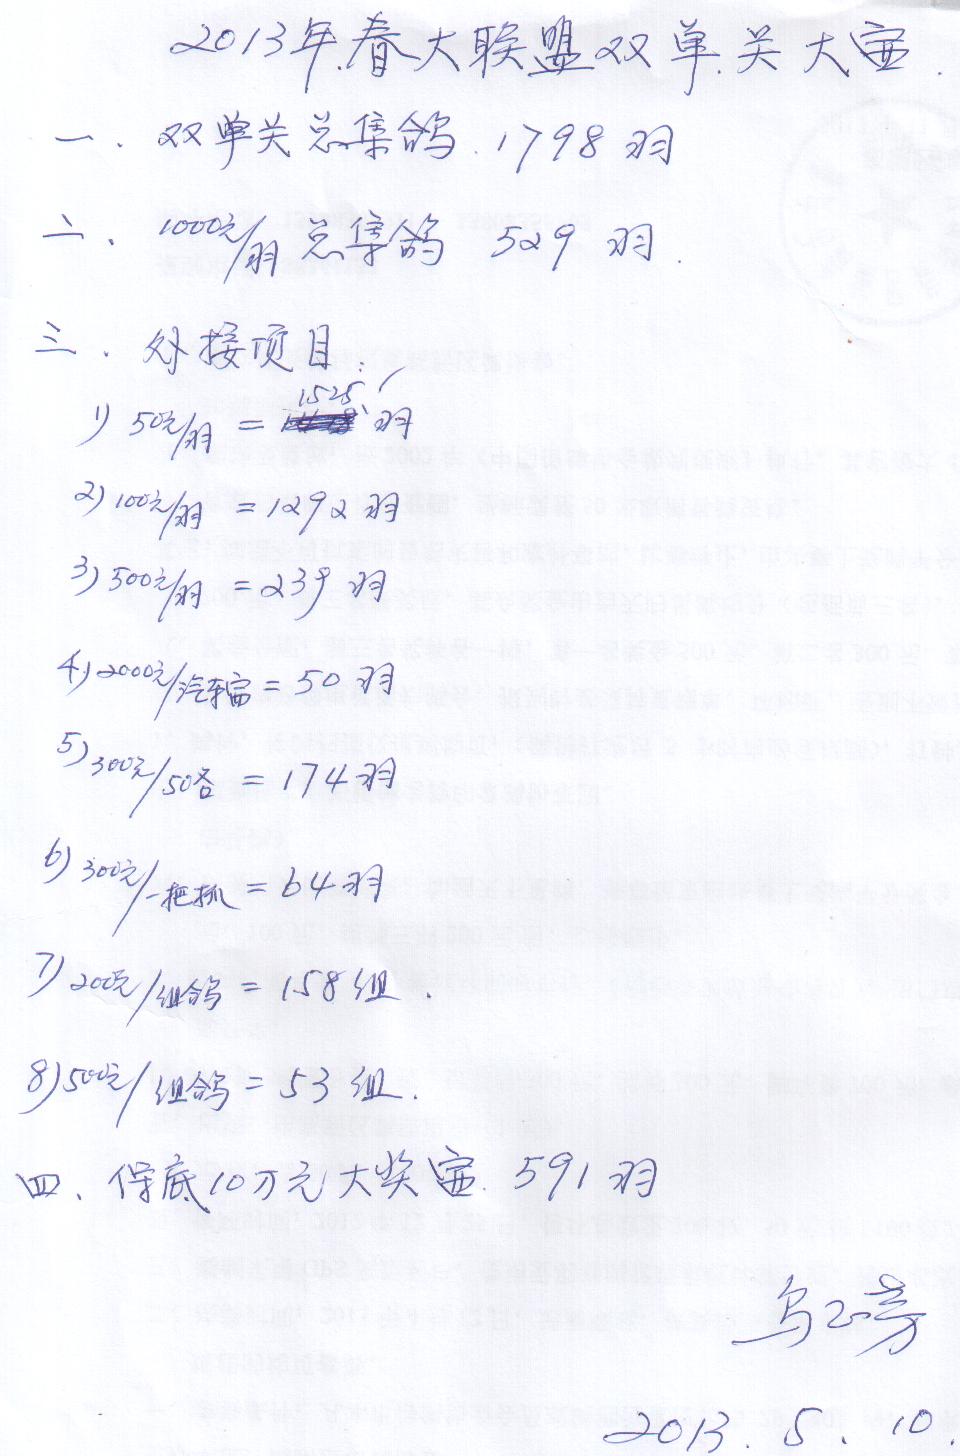 2013年春大联盟双单关大赛.
一. 双单关总集鸽. 1798羽
二. 1000元/羽总集鸽 529羽.
三. 外接项目.
1) 50元/羽 = 1525羽
2) 100元/羽 = 1292羽
3) 500元/羽 = 239羽
4) 2000元/汽车赛 = 50羽
5) 300元/50名 = 174羽
6) 300元/一把抓 = 64羽
7) 200元/组鸽 = 158组.
8) 500元/组鸽 = 53组.
四. 保底10万元大奖赛. 591羽
2013. 5. 10.